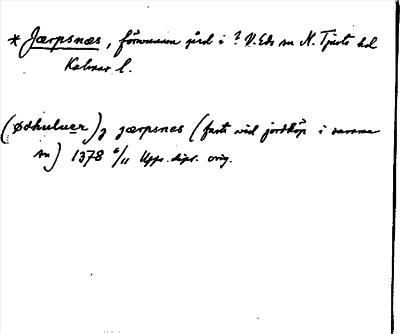 * Jærpsnæs, försvunnen gård i ? V. Eds sn N. Tjusts hd
Kalmar l.
(Ødhuluer) j jærpsnes (fasta vid jordköp i samma
sn) 1378 6/11 Upps. dipl. orig.